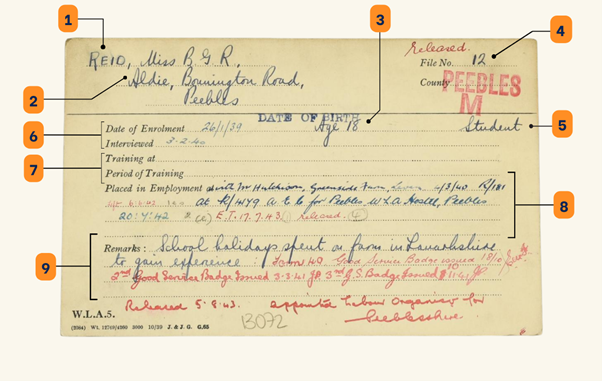 1
3
4
Released.
REID, Miss B. G. R,
File No. 12
Aldie, Bonnington Road,
County PEEBLES
2
Peebles
M
DATE OF BIRTH
6
Date of Enrolment 26/1/39 Age 18 Student
5
Interviewed 3-2-40
7
Training at
Period of Training
Placed in Employment with Mr Hutchison, Greenside Farm, 4/3/40 R/181
at R/479 A.E.C for Peebles W.L.A Hostel, Peebles
8
20:4:42 E.T. 17.7.43 Released
Remarks: School holidays spent on farm in Lanarkshire
9
to gain experience: Form 49. Good Service Badge issued 18/10
2nd Good Service Badge Issued 3-3-41 JP 3rd G.S. Badge Issued
Released 5.8.43. appointed Labour Organiser for
Peeblesshire.
W.L.A.5.
13072
(5984) Wt. 12710/4360 3000 10/39 J. & J. G. G.65